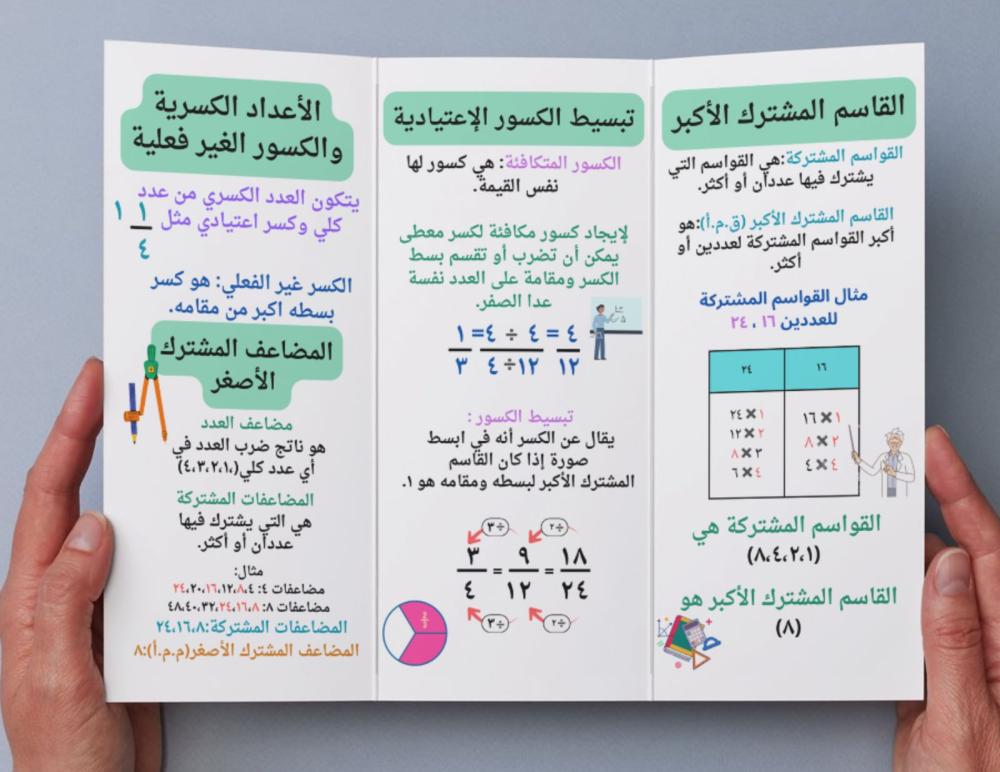 القاسم المشترك الأكبر
القواسم المشتركة:هي القواسم التي
يشترك فيها عددان أو أكثر.
القاسم المشترك الأكبر (ق.م.أ):هو
أكبر القواسم المشتركة لعددين أو
أكثر.
مثال القواسم المشتركة
للعددين ١٦ ، ٢٤
١٦ ٢٤
١×١٦ ١×٢٤
٢×٨ ٢×١٢
٤×٤ ٣×٨
٤×٦
القواسم المشتركة هي
(٨،٤،٢،١)
القاسم المشترك الأكبر هو
(٨)
تبسيط الكسور الإعتيادية
الكسور المتكافئة: هي كسور لها
نفس القيمة.
لإيجاد كسور مكافئة لكسر معطى
يمكن أن تضرب أو تقسم بسط
الكسر ومقامة على العدد نفسة
عدا الصفر.
٤ = ٤ ÷ ٤= ١
١٢ ١٢÷ ٤ ٣
تبسيط الكسور :
يقال عن الكسر أنه في ابسط
صورة إذا كان القاسم
المشترك الأكبر لبسطه ومقامه هو ١.
÷٢ ÷٣
١٨ = ٩ = ٣
٢٤ ١٢ ٤
÷٢ ÷٣
الأعداد الكسرية
والكسور الغير فعلية
يتكون العدد الكسري من عدد
كلي وكسر اعتيادي مثل ١ ١/٤
الكسر غير الفعلي: هو كسر
بسطه اكبر من مقامه.
المضاعف المشترك
الأصغر
مضاعف العدد
هو ناتج ضرب العدد في
أي عدد كلي(٤،٣،٢،١،)
المضاعفات المشتركة
هي التي يشترك فيها
عددان أو أكثر.
مثال:
مضاعفات ٤: ٢٤،٢٠،١٦،١٢،٨،٤
مضاعفات ٨: ٤٨،٤٠،٣٢،٢٤،١٦،٨
المضاعفات المشتركة:٢٤،١٦،٨
المضاعف المشترك الأصغر(م.م.أ):٨